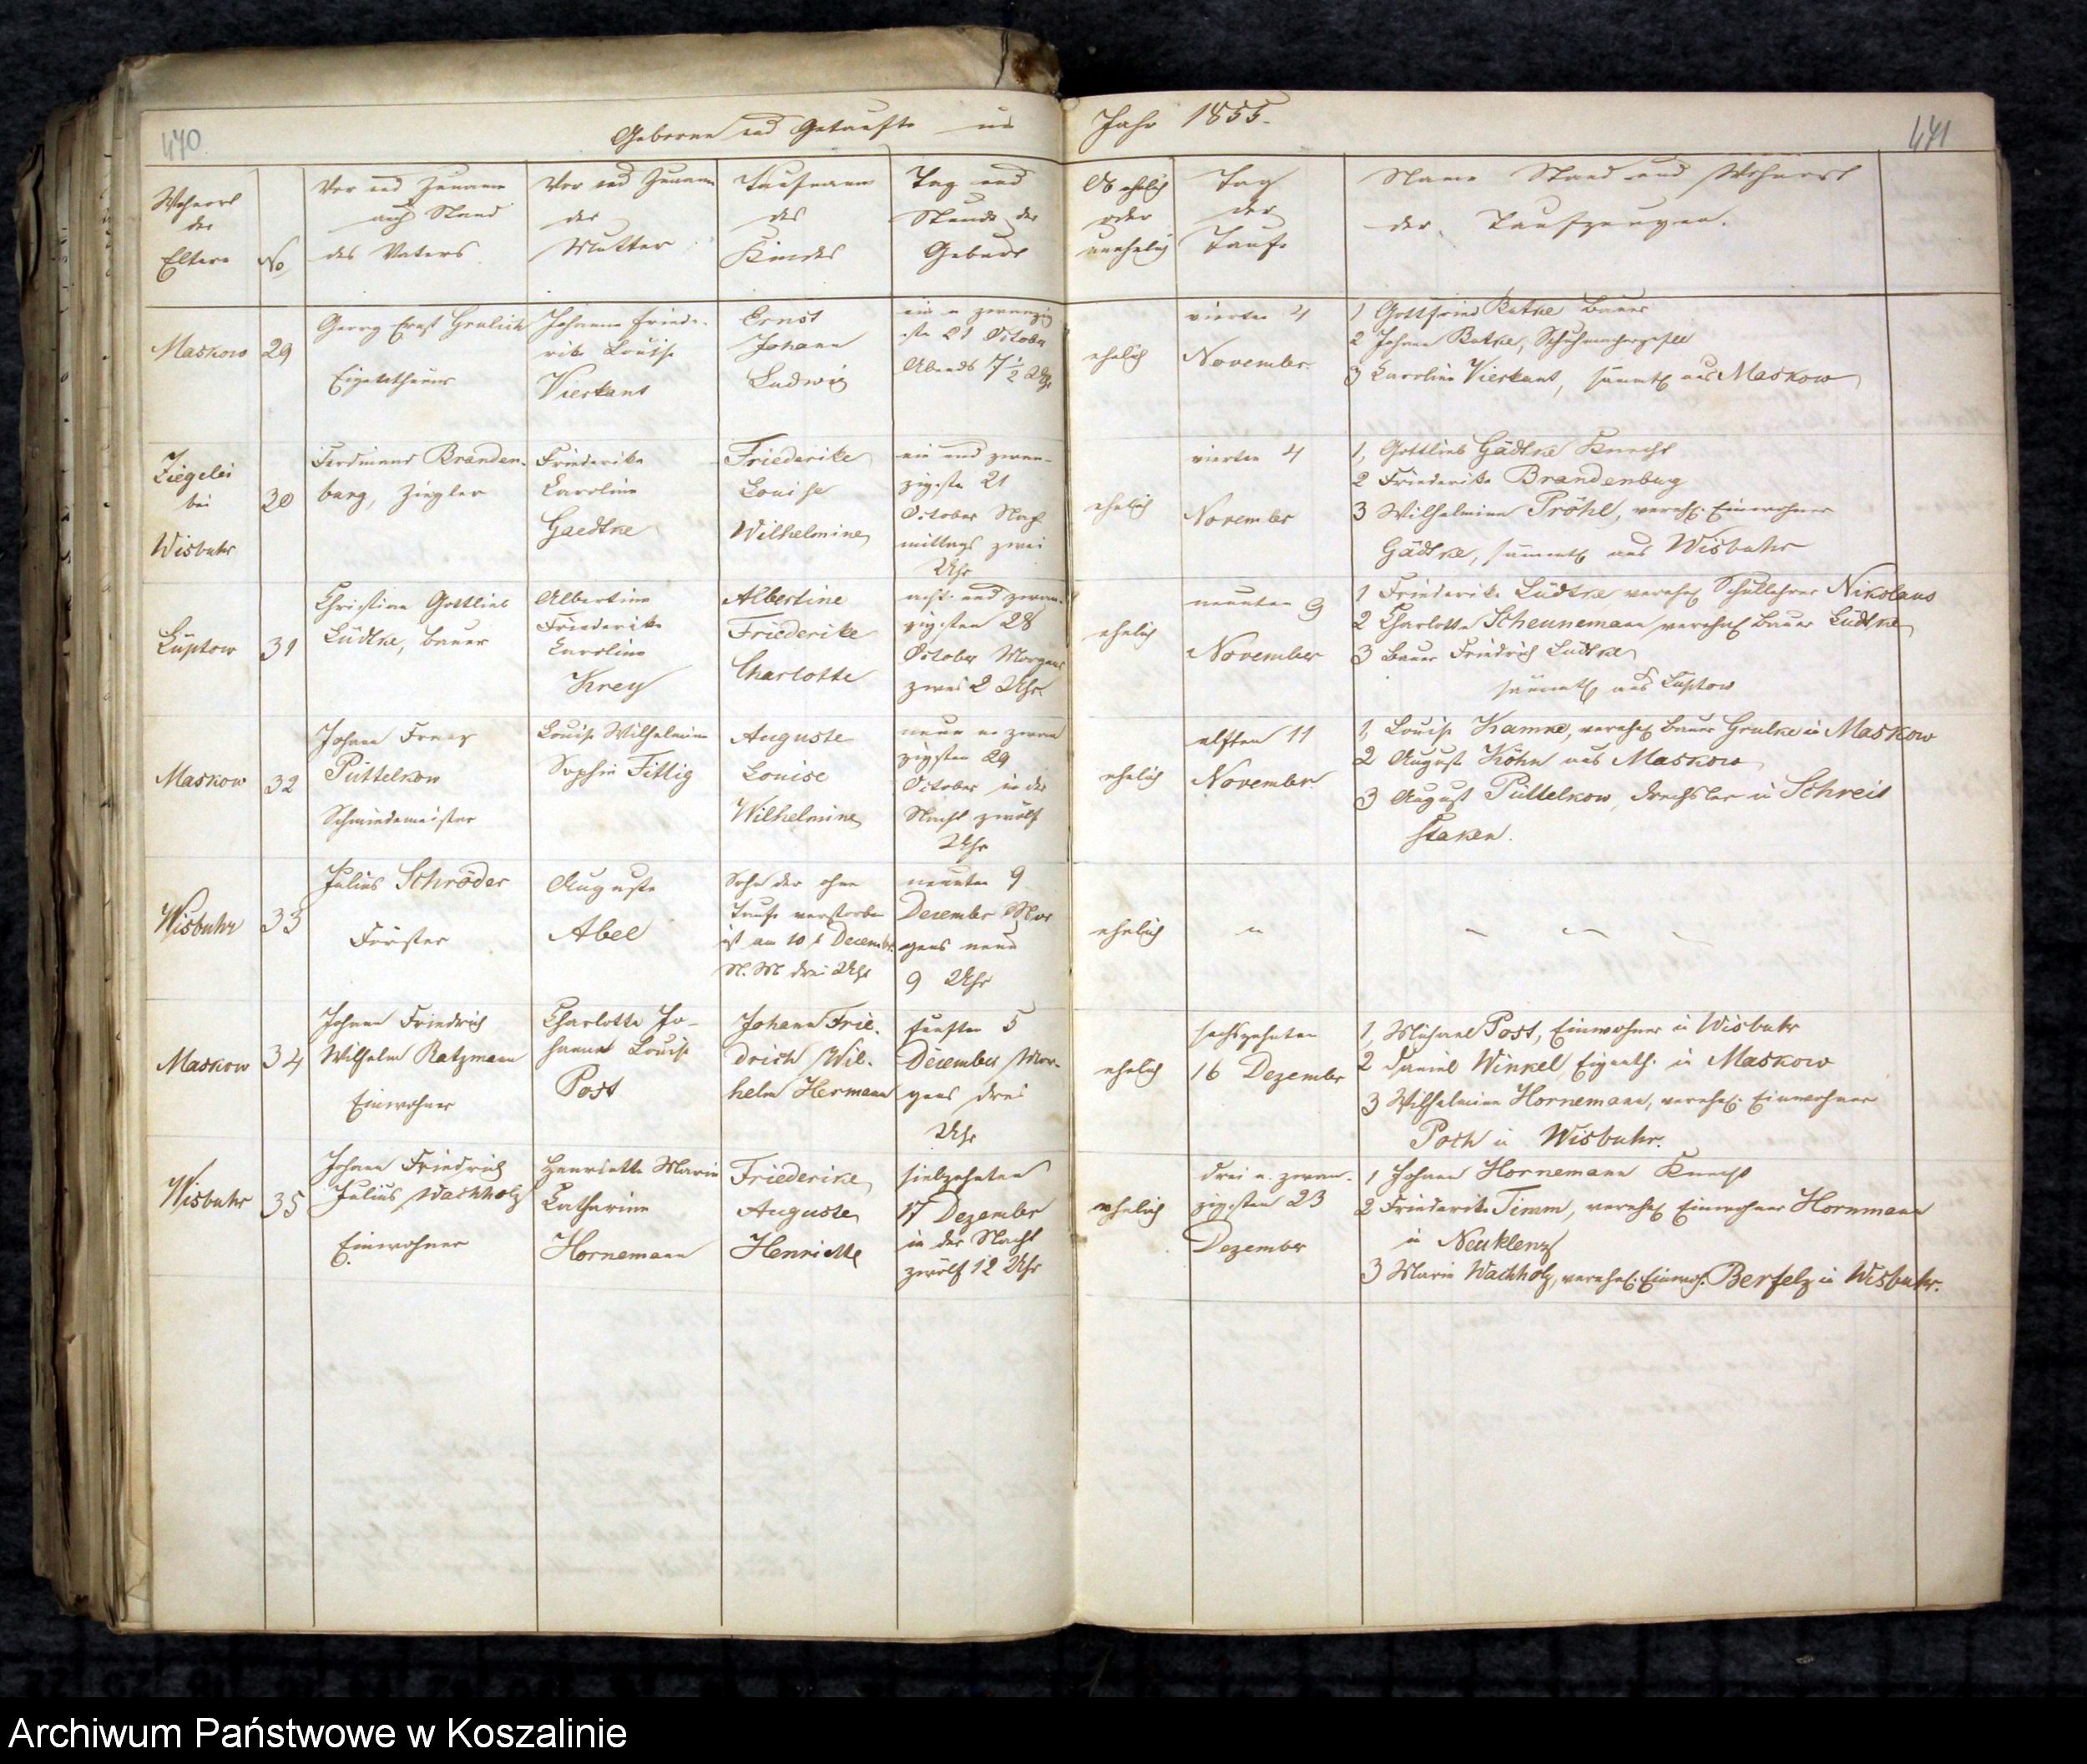 470
Geborne und Getaufte im
Wohnort
der
Eltern
No
Vor und Zuname
auch Stand
des Vaters
Vor und Zuname
der
Mutter
Taufname
des
Kindes
Tag und
Stunde der
Geburt
Maskow
29
Georg Ernst
Eigenthümer
Johanne Friede-
rike Louise
Vierkant
Ernst
Johann
Ludwig
ein u zwanzig
ste 21 October
Abends 7 1/2 Uhr
Ziegelei
bei
Wisbuhr
30
Ferdinand Branden-
burg, Ziegler
Friederike
Caroline
Gaedtke
Friederike
Louise
Wilhelmine
ein und zwan-
zigste 21
October Nach
mittags zwei
Uhr
Lüptow
31
Christian Gottlieb
Lüdtke, Bauer
Albertine
Friederike
Caroline
Krey
Albertine
Friederike
Charlotte
acht und zwan-
zigsten 28
October Morgens
zwei 2 Uhr
Maskow
32
Johann Franz
Püttelkow
Schmiedemeister
Louise Wilhelmine
Sophie Tittig
Auguste
Louise
Wilhelmine
neun u zwan
zigsten 29
October in der
Nacht zwölf
Uhr
Wisbuhr
33
Julius Schröder
Förster
Auguste
Abel
Sohn der ohne
Taufe verstorben
ist am 10 t Decembr.
N. M. drei Uhr
neunten 9
December Mor
gens neun
9 Uhr
Maskow
34
Johann Friedrich
Wilhelm Ratzmann
Einwohner
Charlotte Jo-
hanne Louise
Post
Johann Frie-
drich Wil-
helm Hermann
fünften 5
December Mor-
gens drei
Uhr
Wisbuhr
35
Johann Friedrich
Julius Wachholz
Einwohner
Henriette Marie
Catharine
Hornemann
Friederike
Auguste
Henriette
siebzehnten
17 Dezember
in der Nacht
zwölf 12 Uhr
Jahr 1855.
471
Ob ehelich
oder
unehelich
Tag
der
Taufe
Name Stand und Wohnort
der Taufzeugen.
ehelich
vierten 4
November.
1 Gottfried Ratke Bauer
2 Johann Ratke, Schuhmachergesell
3 Caroline Vierkant, sämmtl aus Maskow
ehelich
vierten 4
November
1, Gottlieb Gädtke Knecht
2 Friederike Brandenburg
3 Wilhelmine Pröhl, verehl. Einwohner
Gädtke, sämmtl aus Wisbuhr
ehelich
neunten 9
November
1 Friederike Lüdtke verehel Schullehrer Nikolaus
2 Charlotte Scheunemann verehel Bauer Lüdtke
3 Bauer Friedrich Lüdtke
sämmtl aus Lüptow
ehelich
elften 11
November
1, Louise Kamke, verehel Bauer Grulke in Maskow
2 August Köhn aus Maskow
3 August Püttelkow, Drechsler in Schreit
staken.
ehelich
ehelich
sechszehnten
16 Dezember
1, Michael Post, Einwohner in Wisbuhr
2 Daniel Winkel Eigenth. in Maskow
3 Wilhelmine Hornemann, verehel. Einwohner
in Wisbuhr.
ehelich
drei u. zwan-
zigsten 23
Dezember
1 Johann Hornemann Knecht
2 Friederike Timm, verehel Einwohner Hornmann
in Neuklenz
3 Marie Wachholz, verehel. Einwoh. in Wisbuhr.
Archiwum Państwowe w Koszalinie